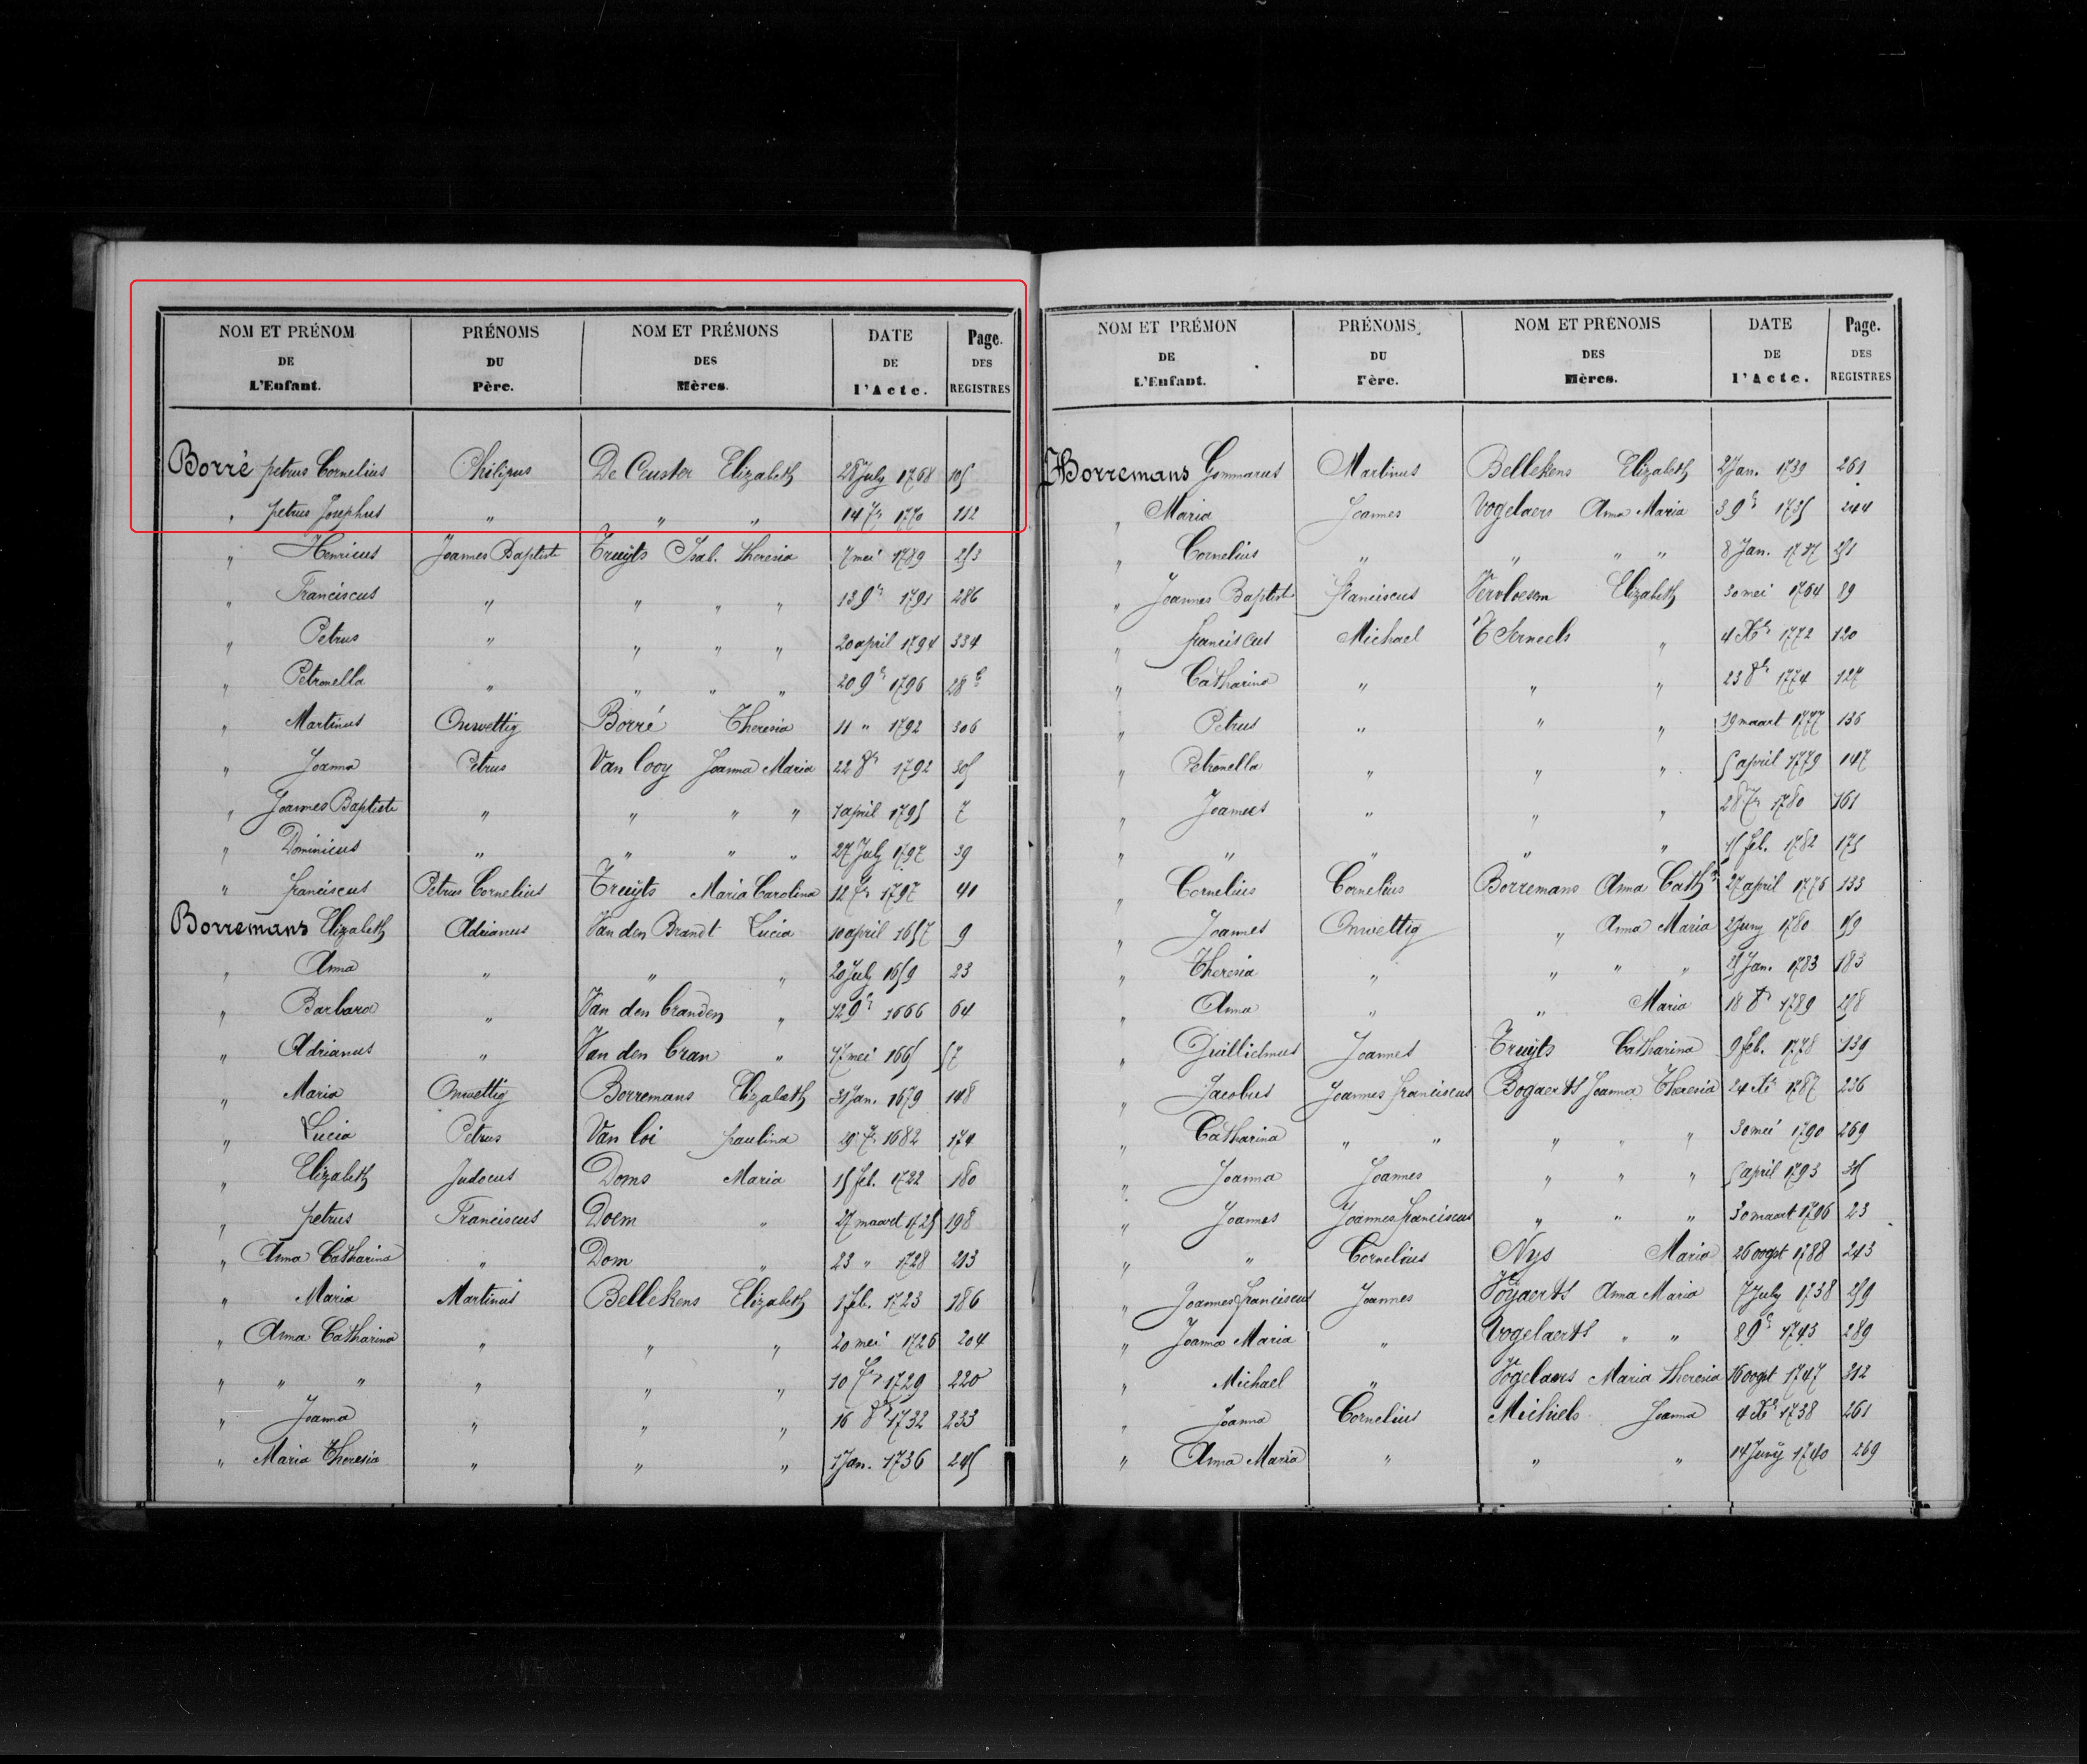 NOM ET PRÉNOM PRÉNOMS NOM ET PRÉMONS DATE Page.
DE DU DES DE DES
L'Enfant. Père. Mères. l'Acte. REGISTRES
Borré petrus Cornelius Philipus De Ceuster Elizabeth 28 July 1768 105
" petrus Josephus " " " 14 7r 1770 112
" Henricus Joannes Baptiste Truyts Isab. theresia 7 mei 1789 253
" Franciscus " " " " 13 9r 1791 286
" Petrus " " " " 20 april 1794 334
" Petronella " " " " 20 9r 1796 28
" Martinus Onwettig Borré Theresia 11 " 1792 306
" Joanna Petrus Van looy Joanna Maria 22 8r 1792 305
" Joannes Baptiste " " " " 7 april 1795 7
" Dominicus " " " " 27 July 1797 39
" franciscus Petrus Cornelius Truyts Maria Carolina 12 7r 1797 40
Borremans Elizabeth Adrianus Van den Brandt Lucia 10 april 1657 9
" Anna " " " 20 July 1659 23
" Barbara " Van den branden " 12 9r 1666 64
" Adrianus " Van den bran " 17 mei 1665 57
" Maria Onwettig Borremans Elizabeth 31 Jan. 1679 148
" Lucia Petrus Van loi paulina 29 7r 1682 170
" Elizabeth Judocus Doms Maria 15 feb. 1722 180
" petrus Franciscus Doem " 27 maart 1725 198
" Anna Catharina " Dom " 23 " 1728 213
" Maria Martinus Bellekens Elizabeth 1 feb. 1723 186
" Anna Catharina " " " 20 mei 1726 204
" " " " " " 10 7r 1729 220
" Joanna " " " 16 8r 1732 233
" Maria theresia " " " 1 Jan. 1736 245
NOM ET PRÉMON PRÉNOMS NOM ET PRÉNOMS DATE Page.
DE DU DES DE DES
L'Enfant. Père. Mères. l'Acte. REGISTRES
Borremans Gommarus Martinus Bellekens Elizabeth 2 Jan. 1739 261
" Maria Joannes Vogelaers Anna Maria 3 9r 1735 244
" Cornelius " " " " 8 Jan. 1737 251
" Joannes Baptist franciscus Vervloesem Elizabeth 30 mei 1764 89
" franciscus Michael T'Serneels " 4 Xr 1772 120
" Catharina " " " 23 8r 1774 127
" Petrus " " " 19 maart 1777 136
" Petronella " " " 5 april 1779 147
" Joannes " " " 28 7r 1780 161
" " " " " 15 feb. 1782 175
" Cornelius Cornelius Borremans Anna Cath. 27 april 1776 133
" Joannes Onwettig " Anna Maria 2 Juny 1780 159
" Theresia " " " " Jan. 1783 183
" Anna " " Maria 18 8r 1789 258
" Guillielmus Joannes Truyts Catharina 9 feb. 1778 139
" Jacobus Joannes franciscus Bogaerts Joanna Theresia 24 Xr 1787 236
" Catharina " " " " " 30 mei 1790 269
" Joanna Joannes " " " 5 april 1793 315
" Joannes Joannes franciscus " " " 30 maart 1796 23
" " Cornelius Nys Maria 26 oogst 1788 243
" Joannes franciscus Joannes Anna Maria 7 July 1738 259
" Joanna Maria " Vogelaerts " " 8 9r 1743 289
" Michael " Vogelaers Maria theresia 16 oogst 1747 312
" Joanna Cornelius Michiels Joanna 4 Xr 1738 261
" Anna Maria " " " 14 Juny 1740 269